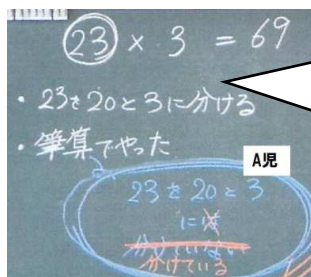 23 × 3 = 69
・23を20と3に分ける
・筆算でやった
A児
23を20と3
に
分けていない
分けている